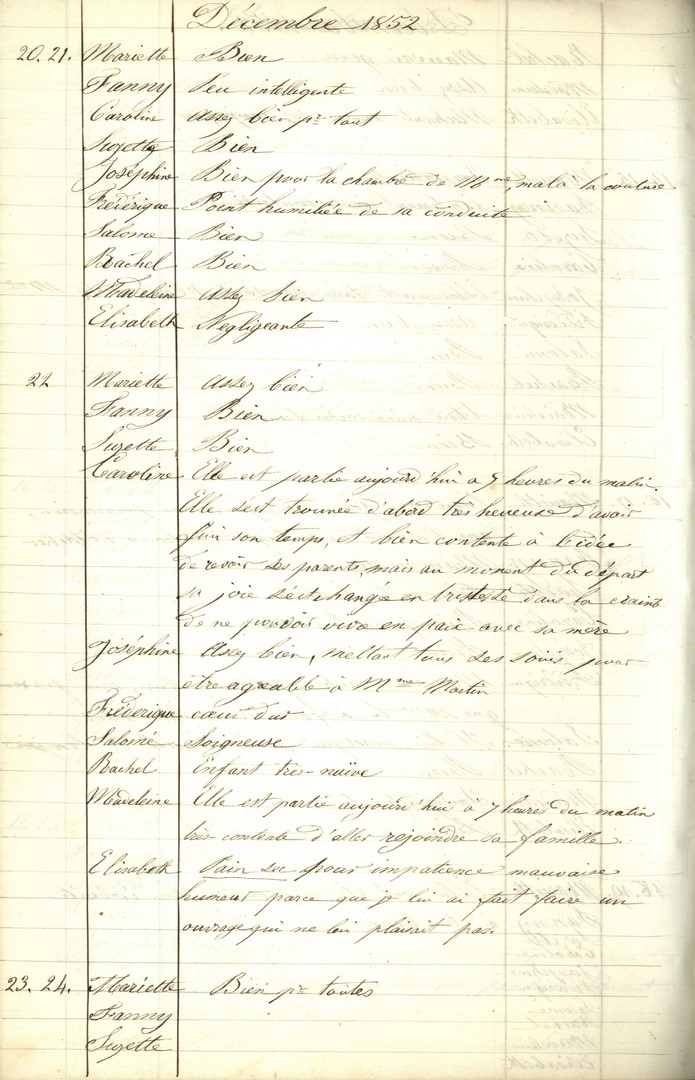 Décembre 1852
20. 21. Mariette Bien
Fanny Peu intelligente
Caroline assez bien pr tout
Suzette Bien
Joséphine Bien pour la chambre de Mme, mal à la couture
Frédérique Point humiliée de sa conduite
Salome Bien
Rachel Bien
Madeleine assez bien
Elisabeth Négligeante
22 Mariette assez bien
Fanny Bien
Suzette Bien
Caroline Elle est partie aujourd'hui à 7 heures du matin.
Elle s'est trouvée d'abord très heureuse d'avoir
fini son temps, et bien contente à l'idée
de revoir ses parents, mais au moment du départ
sa joie s'est changée en tristesse dans la crainte
de ne pouvoir vivre en paix avec sa mère
Joséphine assez bien, mettant tous ses soins pour
être agréable à Mme Martin
Fréderique cœur dur
Salomé soigneuse
Rachel Enfant très-naïve
Madeleine Elle est partie aujourd'hui à 7 heures du matin
très-contente d'aller rejoindre sa famille.
Elisabeth Pain sec pour impatience mauvaise
humeur parce que je lui ai fait faire un
ouvrage qui ne lui plaisait pas.
23. 24. Mariette Bien pr toutes
Fanny
Suzette